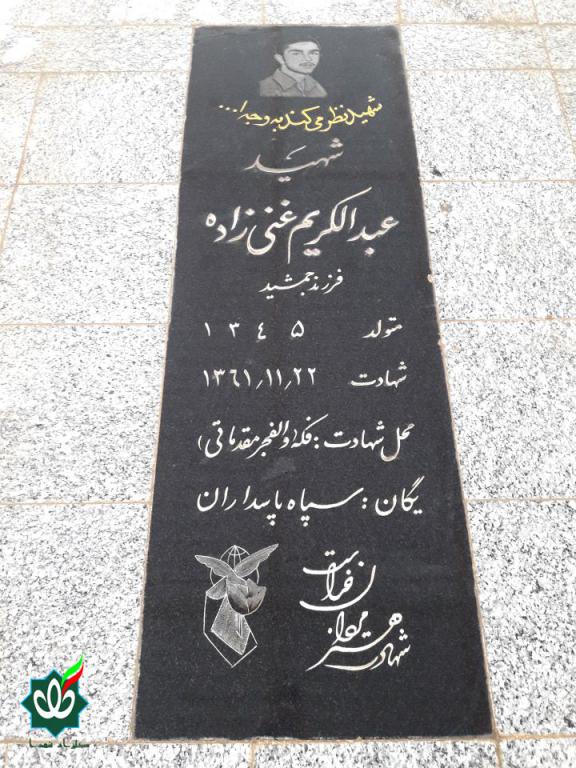 شهید نظر می کند به وجه ا...
شهید
عبدالکریم غنی زاده
فرزند جمشید
متولد ۱۳٤۵
شهادت ۱۳٦۱٫۱۱٫۲۲
محل شهادت : فکه (والفجر مقدماتی)
یگان : سپاه پاسداران
شهادت هنر مردان خداست